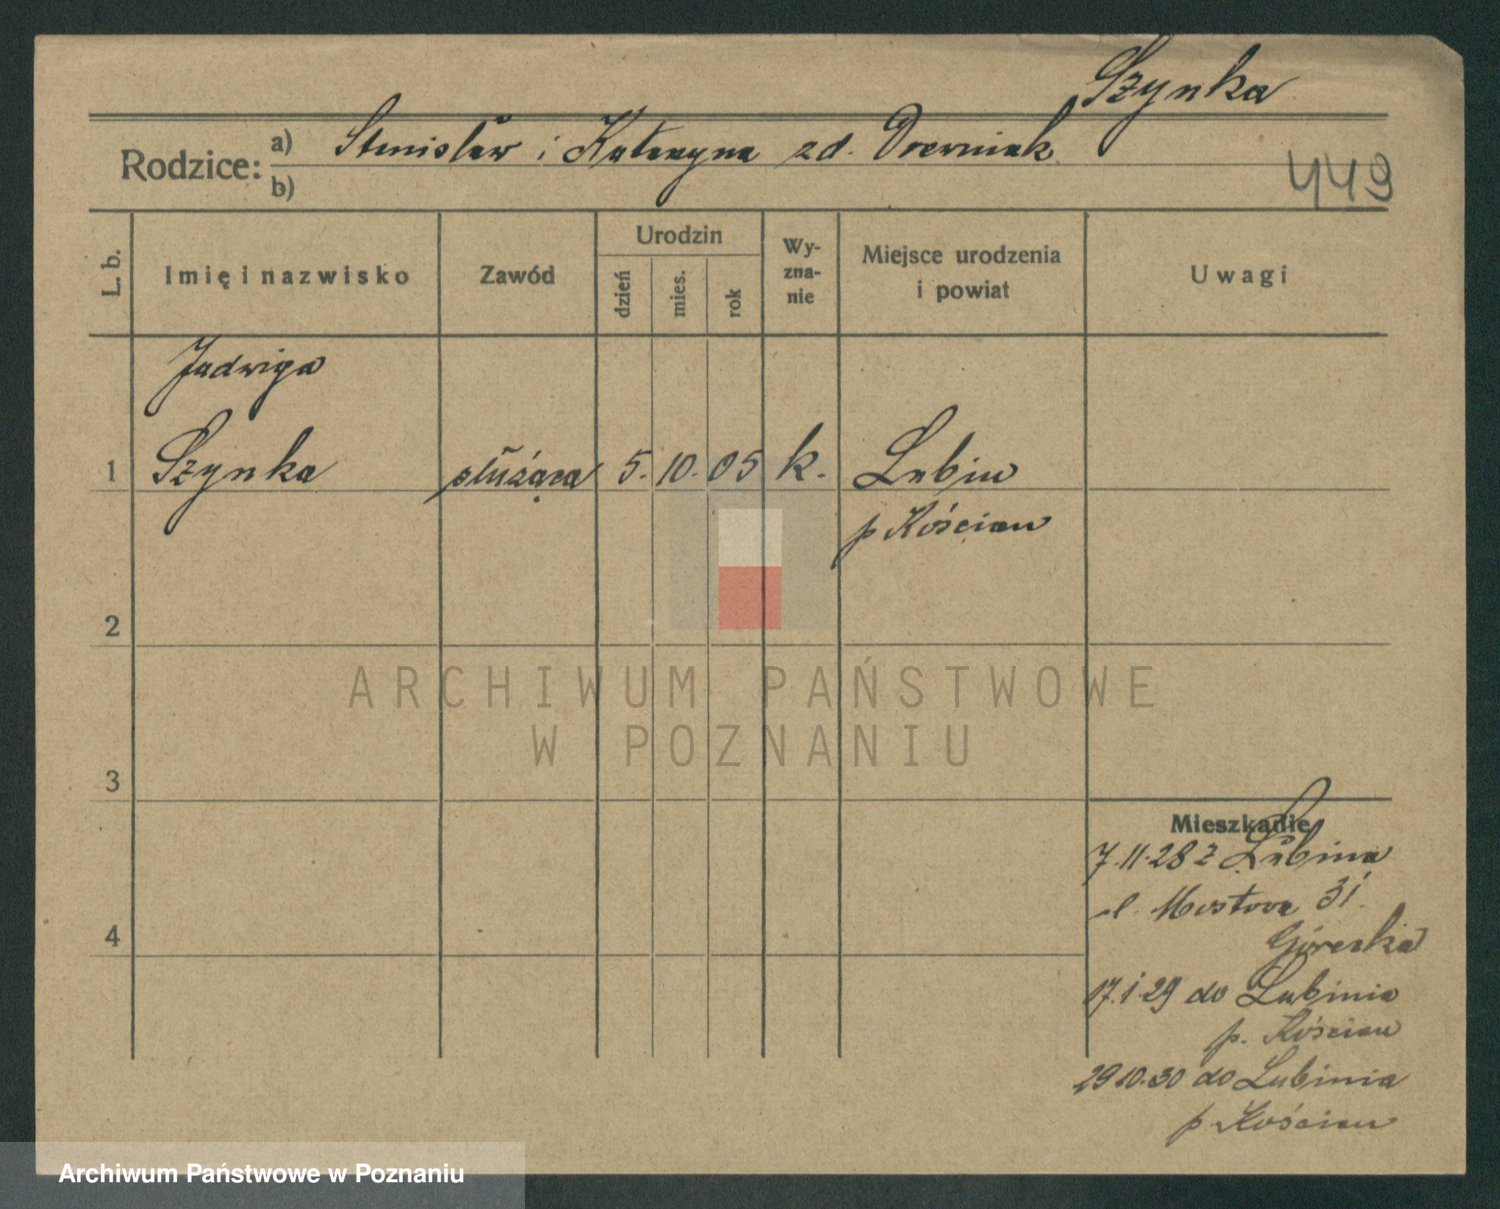 Szynka
Rodzice: a) Stanisław i Katarzyna zd. Drewniak
b)
449
L. b.
Imię i nazwisko
Zawód
Urodzin
dzień
mies.
rok
Wy-
zna-
nie
Miejsce urodzenia
i powiat
Uwagi
Jadwiga
1 Szynka służąca 5. 10. 05 k. Lubiń
p Kościan
2
3
4
Mieszkanie
7.11.28 z Lubinia
ul. Mostowa 31
Górecka
17.1.29 do Lubinia
p. Kościan
29.10.30 do Lubinia
p Kościan
ARCHIWUM PAŃSTWOWE
W POZNANIU
Archiwum Państwowe w Poznaniu